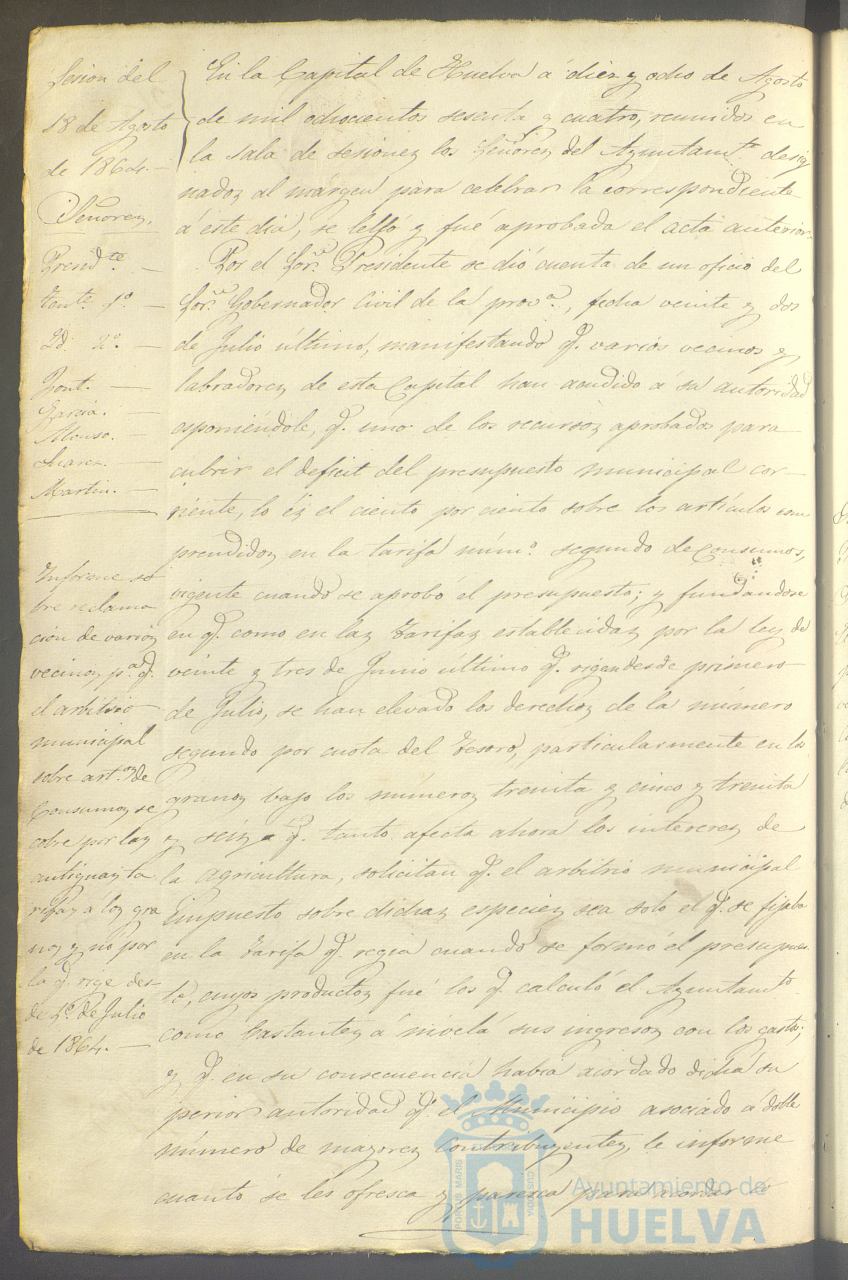 Sesion del
18 de Agosto
de 1864.—
Señores.
Presid.te —
Tent.e 1.º —
Id. 2.º —
Pont. —
Garcia. —
Alonso. —
Suarez. —
Martin. —
Informe so
bre reclama
ción de varios
vecinos, p.a q.e
el arbitrio
municipal
sobre art.os de
Consumos se
cobre por las
antiguas ta
rifas a los gra
nos y no por
la q. rige des-
de 1.º de Julio
de 1864.—
En la Capital de Huelva á diez y ocho de Agosto
de mil ochocientos sesenta y cuatro, reunidos en
la Sala de sesiones los Señores del Ayuntam.to desig
nados al margen para celebrar la correspondiente
á este dia, se leyó y fué aprobada el acta anterior.
Por el Sor. Presidente se dió cuenta de un oficio del
Sor. Gobernador Civil de la prov.a, fecha veinte y dos
de Julio último, manifestando q. varios vecinos y
labradores de esta Capital han acudido á su autoridad
esponiéndole, q. uno de los recursos aprobados para
cubrir el deficit del presupuesto municipal cor-
riente, lo és el ciento por ciento sobre los artículos com
prendidos en la tarifa núm.º segundo de Consumos,
vigente cuando se aprobó el presupuesto; y fundandose
en q. como en las tarifas establecidas por la ley de
veinte y tres de Junio último q. rigen desde primero
de Julio, se han elevado los derechos de la número
segundo por cuota del Tesoro, particularmente en los
granos bajo los números treinta y cinco y treinta
y seis q. tanto afecta ahora los intereses de
la agricultura, solicitan q. el arbitrio municipal
impuesto sobre dichas especies sea solo el q. se fijaba
en la tarifa q. regia cuando se formó el presupues
to, cuyos productos fué los q. calculó el Ayuntam.to
como bastantes á nivelar sus ingresos con los gastos;
y q. en su consecuencia habia acordado dicha su
perior autoridad q. el Municipio asociado á doble
número de mayores contribuyentes, le informe
cuanto se les ofresca y paresca para acordar
PORTUS MARIS
CUSTODIA
Ayuntamiento de
HUELVA